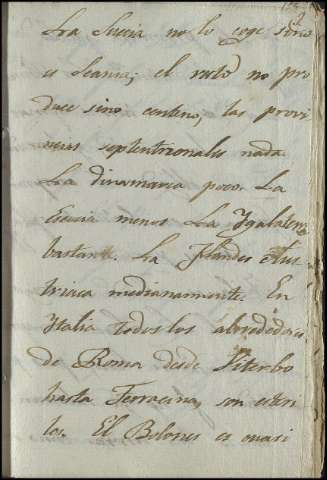 La Suecia no lo coge sino
es Scania; el resto no pro
duce sino centeno, las provi
ncias septentrionales nada
La dinamarca poco. La
Escocia menos La Ygalaterra
bastante. La Flandes Aus
triaca medianamente. En
Ytalia todos los alrededores
de Roma desde Viterbo
hasta Terracina, son esteri
les. El Bolones es quasi